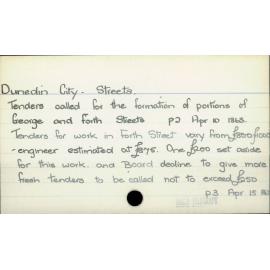 Dunedin City - Streets.
Tenders called for the formation of portions of
George and Forth Streets p2 Apr 10 1863.
Tenders for work in Forth Street vary from £800-
- engineer estimated at £875. One £200 set aside
for this work. and Board decline to give more
fresh tenders to be called not to exceed £250
p3. Apr. 15